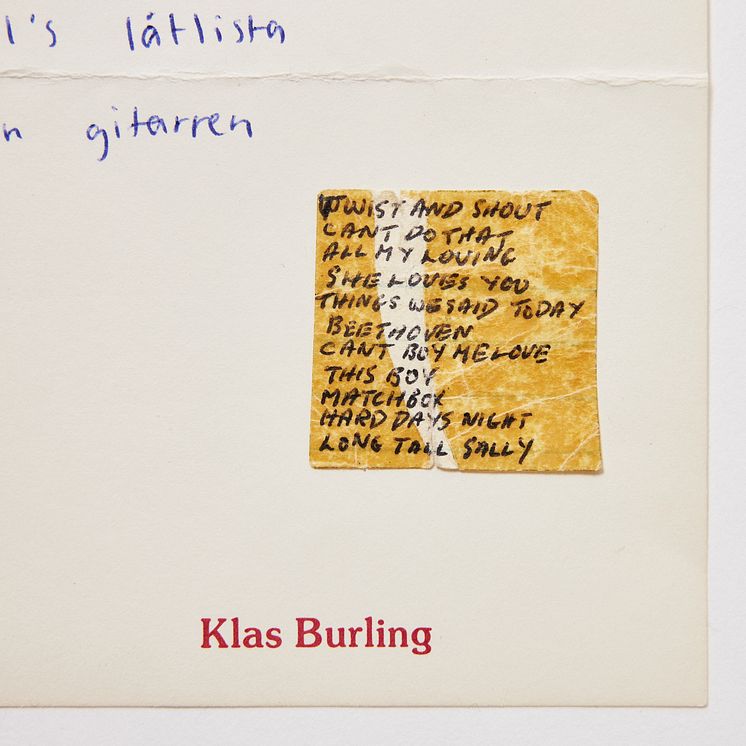 l's låtlista
n gitarren
TWIST AND SHOUT
CANT DO THAT
ALL MY LOVING
SHE LOVES YOU
THINGS WE SAID TODAY
BEETHOVEN
CANT BOY ME LOVE
THIS BOY
MATCHBOX
HARD DAYS NIGHT
LONG TALL SALLY
Klas Burling